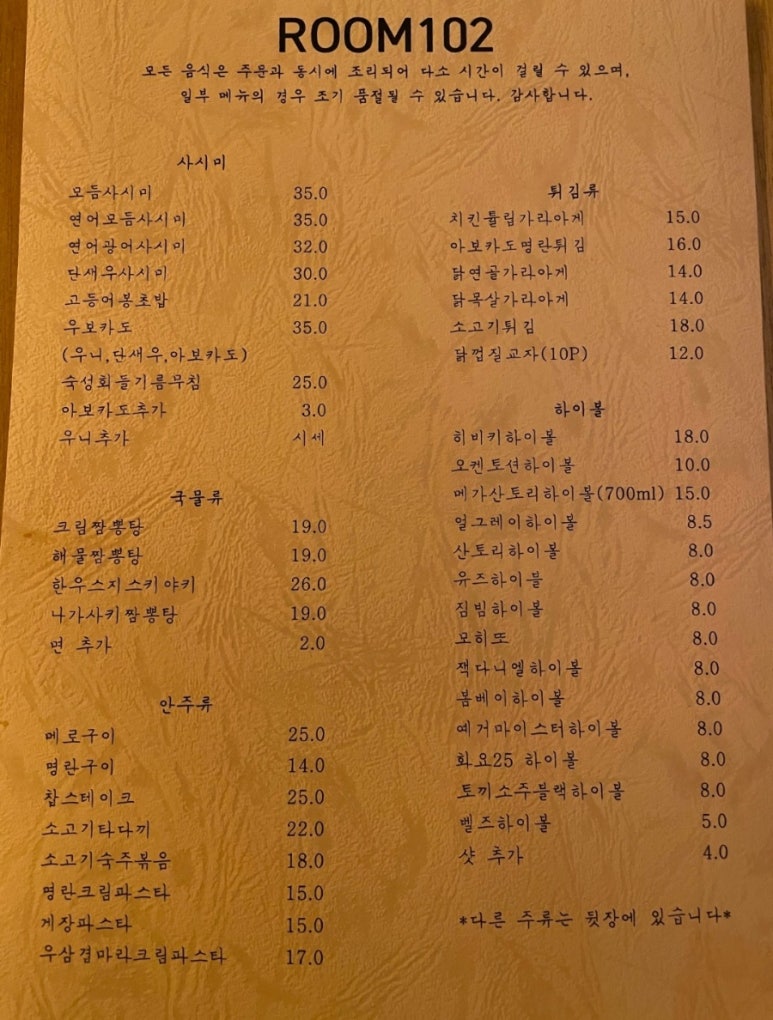 ROOM102
모든 음식은 주문과 동시에 조리되어 다소 시간이 걸릴 수 있으며,
일부 메뉴의 경우 조기 품절될 수 있습니다. 감사합니다.
사시미
모듬사시미 35.0
연어모듬사시미 35.0
연어광어사시미 32.0
단새우사시미 30.0
고등어봉초밥 21.0
우보카도 35.0
(우니,단새우,아보카도)
숙성회들기름무침 25.0
아보카도추가 3.0
우니추가 시세
국물류
크림짬뽕탕 19.0
해물짬뽕탕 19.0
한우스지스키야키 26.0
나가사키짬뽕탕 19.0
면 추가 2.0
안주류
메로구이 25.0
명란구이 14.0
찹스테이크 25.0
소고기타다끼 22.0
소고기숙주볶음 18.0
명란크림파스타 15.0
게장파스타 15.0
우삼겹마라크림파스타 17.0
튀김류
치킨튤립가라아게 15.0
아보카도명란튀김 16.0
닭연골가라아게 14.0
닭목살가라아게 14.0
소고기튀김 18.0
닭껍질교자(10P) 12.0
하이볼
히비키하이볼 18.0
오켄토션하이볼 10.0
메가산토리하이볼(700ml) 15.0
얼그레이하이볼 8.5
산토리하이볼 8.0
유즈하이블 8.0
짐빔하이볼 8.0
모히또 8.0
잭다니엘하이볼 8.0
봄베이하이볼 8.0
예거마이스터하이볼 8.0
화요25 하이볼 8.0
토끼소주블랙하이볼 8.0
벨즈하이볼 5.0
샷 추가 4.0
*다른 주류는 뒷장에 있습니다*